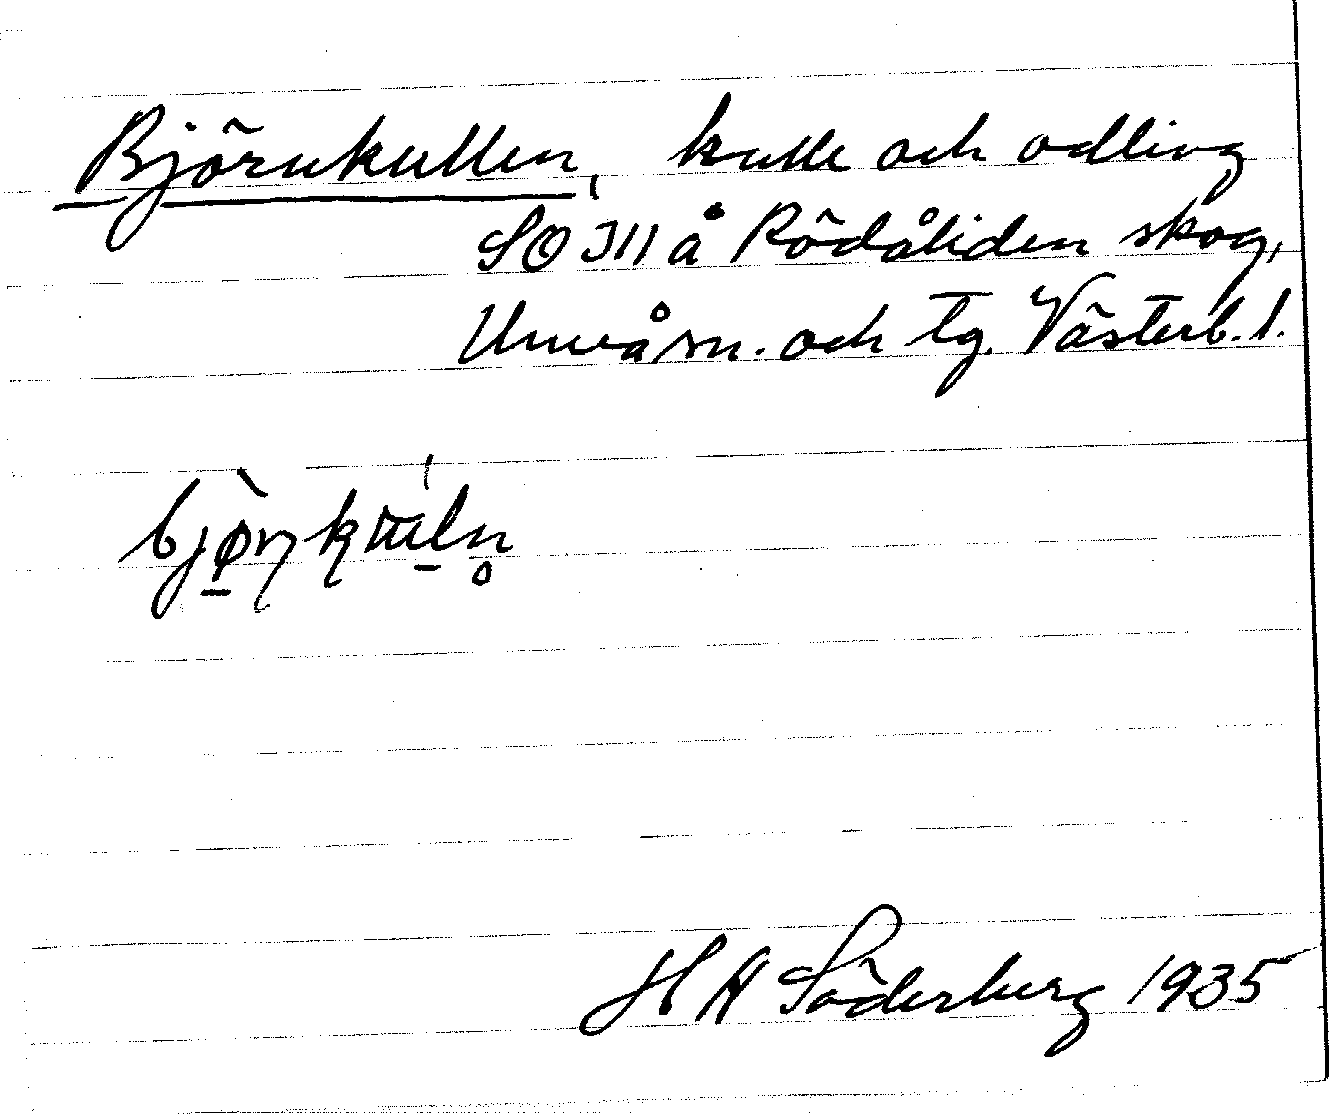 Björnkullen, kulle och odling
SO III å Rödåliden skog,
Umeå sn. och tg. Västerb. l.
H A Söderberg 1935